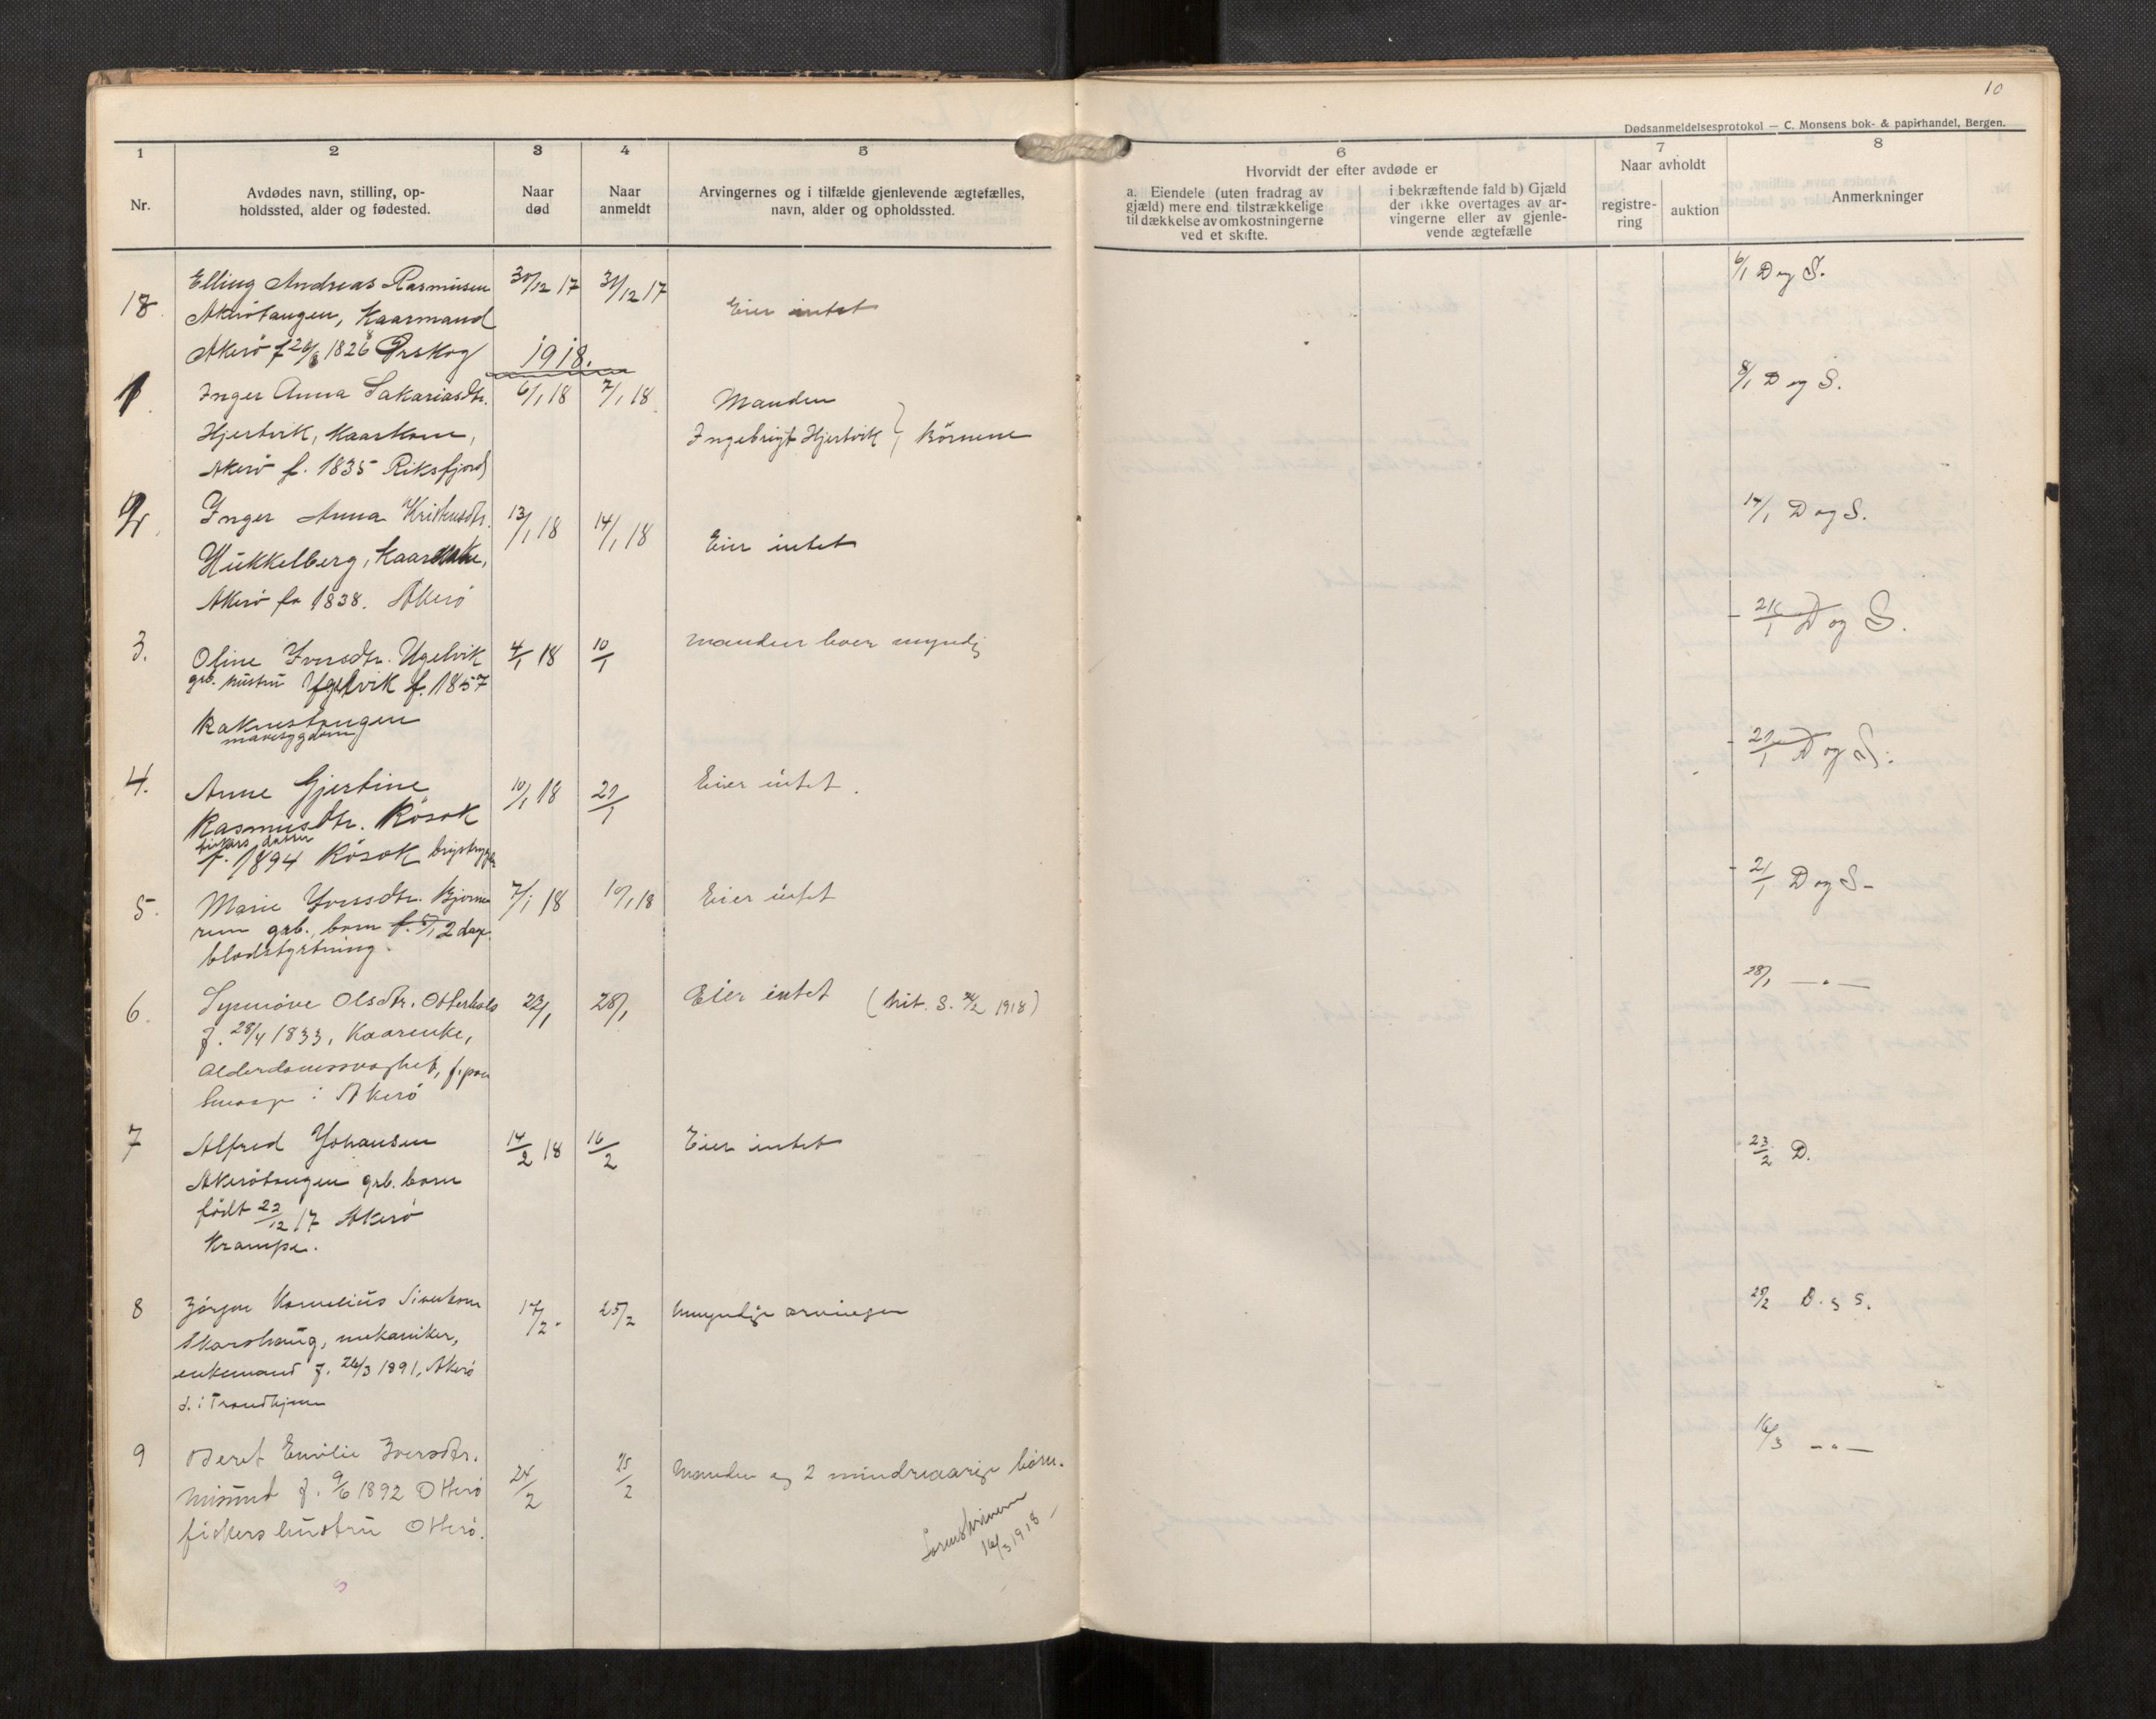 10
Dødsanmeldelsesprotokol — C. Monsens bok- & papirhandel, Bergen.
1 2 3 4 5 6 7 8
Nr.
Avdødes navn, stilling, op-
holdssted, alder og fødested.
Naar
død
Naar
anmeldt
Arvingernes og i tilfælde gjenlevende ægtefælles,
navn, alder og opholdssted.
Hvorvidt der efter avdøde er
a. Eiendele (uten fradrag av
gjæld) mere end tilstrækkelige
til dækkelse av omkostningerne
ved et skifte.
i bekræftende fald b) Gjæld
der ikke overtages av ar-
vingerne eller av gjenle-
vende ægtefælle
Naar avholdt
registre-
ring
auktion
Anmerkninger
18. Elling Andreas Rasmusen 30/12 17 31/12 17 Eier intet 6/1 D og S.
Akerötangen, Kaarmand
Akerö f 1826 Ørskog
1918.
1. Inger Anna Sakariasdtr. 6/1 18 7/1 18 Manden 8/1 D og S.
Hjertvik, Kaarkone, Ingebrigt Hjertvik } Börnene
Akerö f. 1835 Riksfjord
2. Inger Anna 13/1 18 14/1 18 Eier intet 17/1 D og S.
Hukkelberg,
Akerö 1838. Akerö
3. Oline Iversdtr. Ugelvik 4/1 18 10/1 manden myndig 21/1 D og S.
grb. hustru Ugelvik f. 1857
Raknestangen
mavesygdom
4. Anne Gjertine 10/1 18 21/1 Eier intet. 21/1 D og S.
Rasmusdtr. Rösok
f. 1894 Rösok
5. Marie Iversdtr. Bjørne 7/1 18 10/1 18 Eier intet 21/1 D og S-
rem grb. barn 2 dage
blodstyrtning.
6. Synnöve Olsdtr. Otterhals 22/1 28/1 Eier intet (hit. S. 1918) 28/1 —„—
f. 28/4 1833, Kaarenke,
Alderdomssvaghet, f. paa
i Akerö
7 Alfred Johansen 14/2 18 16/2 Eier intet 23/2 D.
Akerötangen grb. barn
födt 22/12 17 Akerö
Krampe.
8 Jörgen Kornelius Sivertsen 17/2 - 25/2 arvinger D. S.
Skarshaug, mekaniker,
enkemand f. 26/3 1891, Akerö
d. i Trondhjem
9 Beret Emilie Iversdtr. 24/2 25/2 Manden og 2 mindreaarige börn. 16/3 —„—
Misund f. 9/6 1892 Otterö
fiskers hustru Otterö.
Sorenskriveren
16/3 1918 —